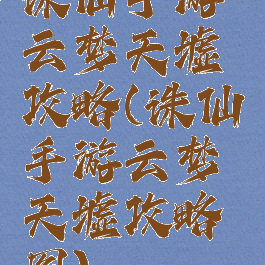 诛仙手游
云梦天墟
攻略(诛仙
手游云梦
天墟攻略
图)